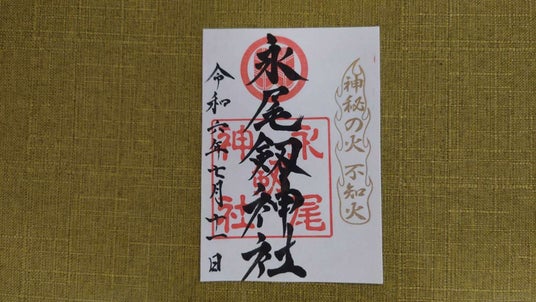 神秘の火 不知火
永尾劔神社
永尾劔神社
令和六年七月十一日